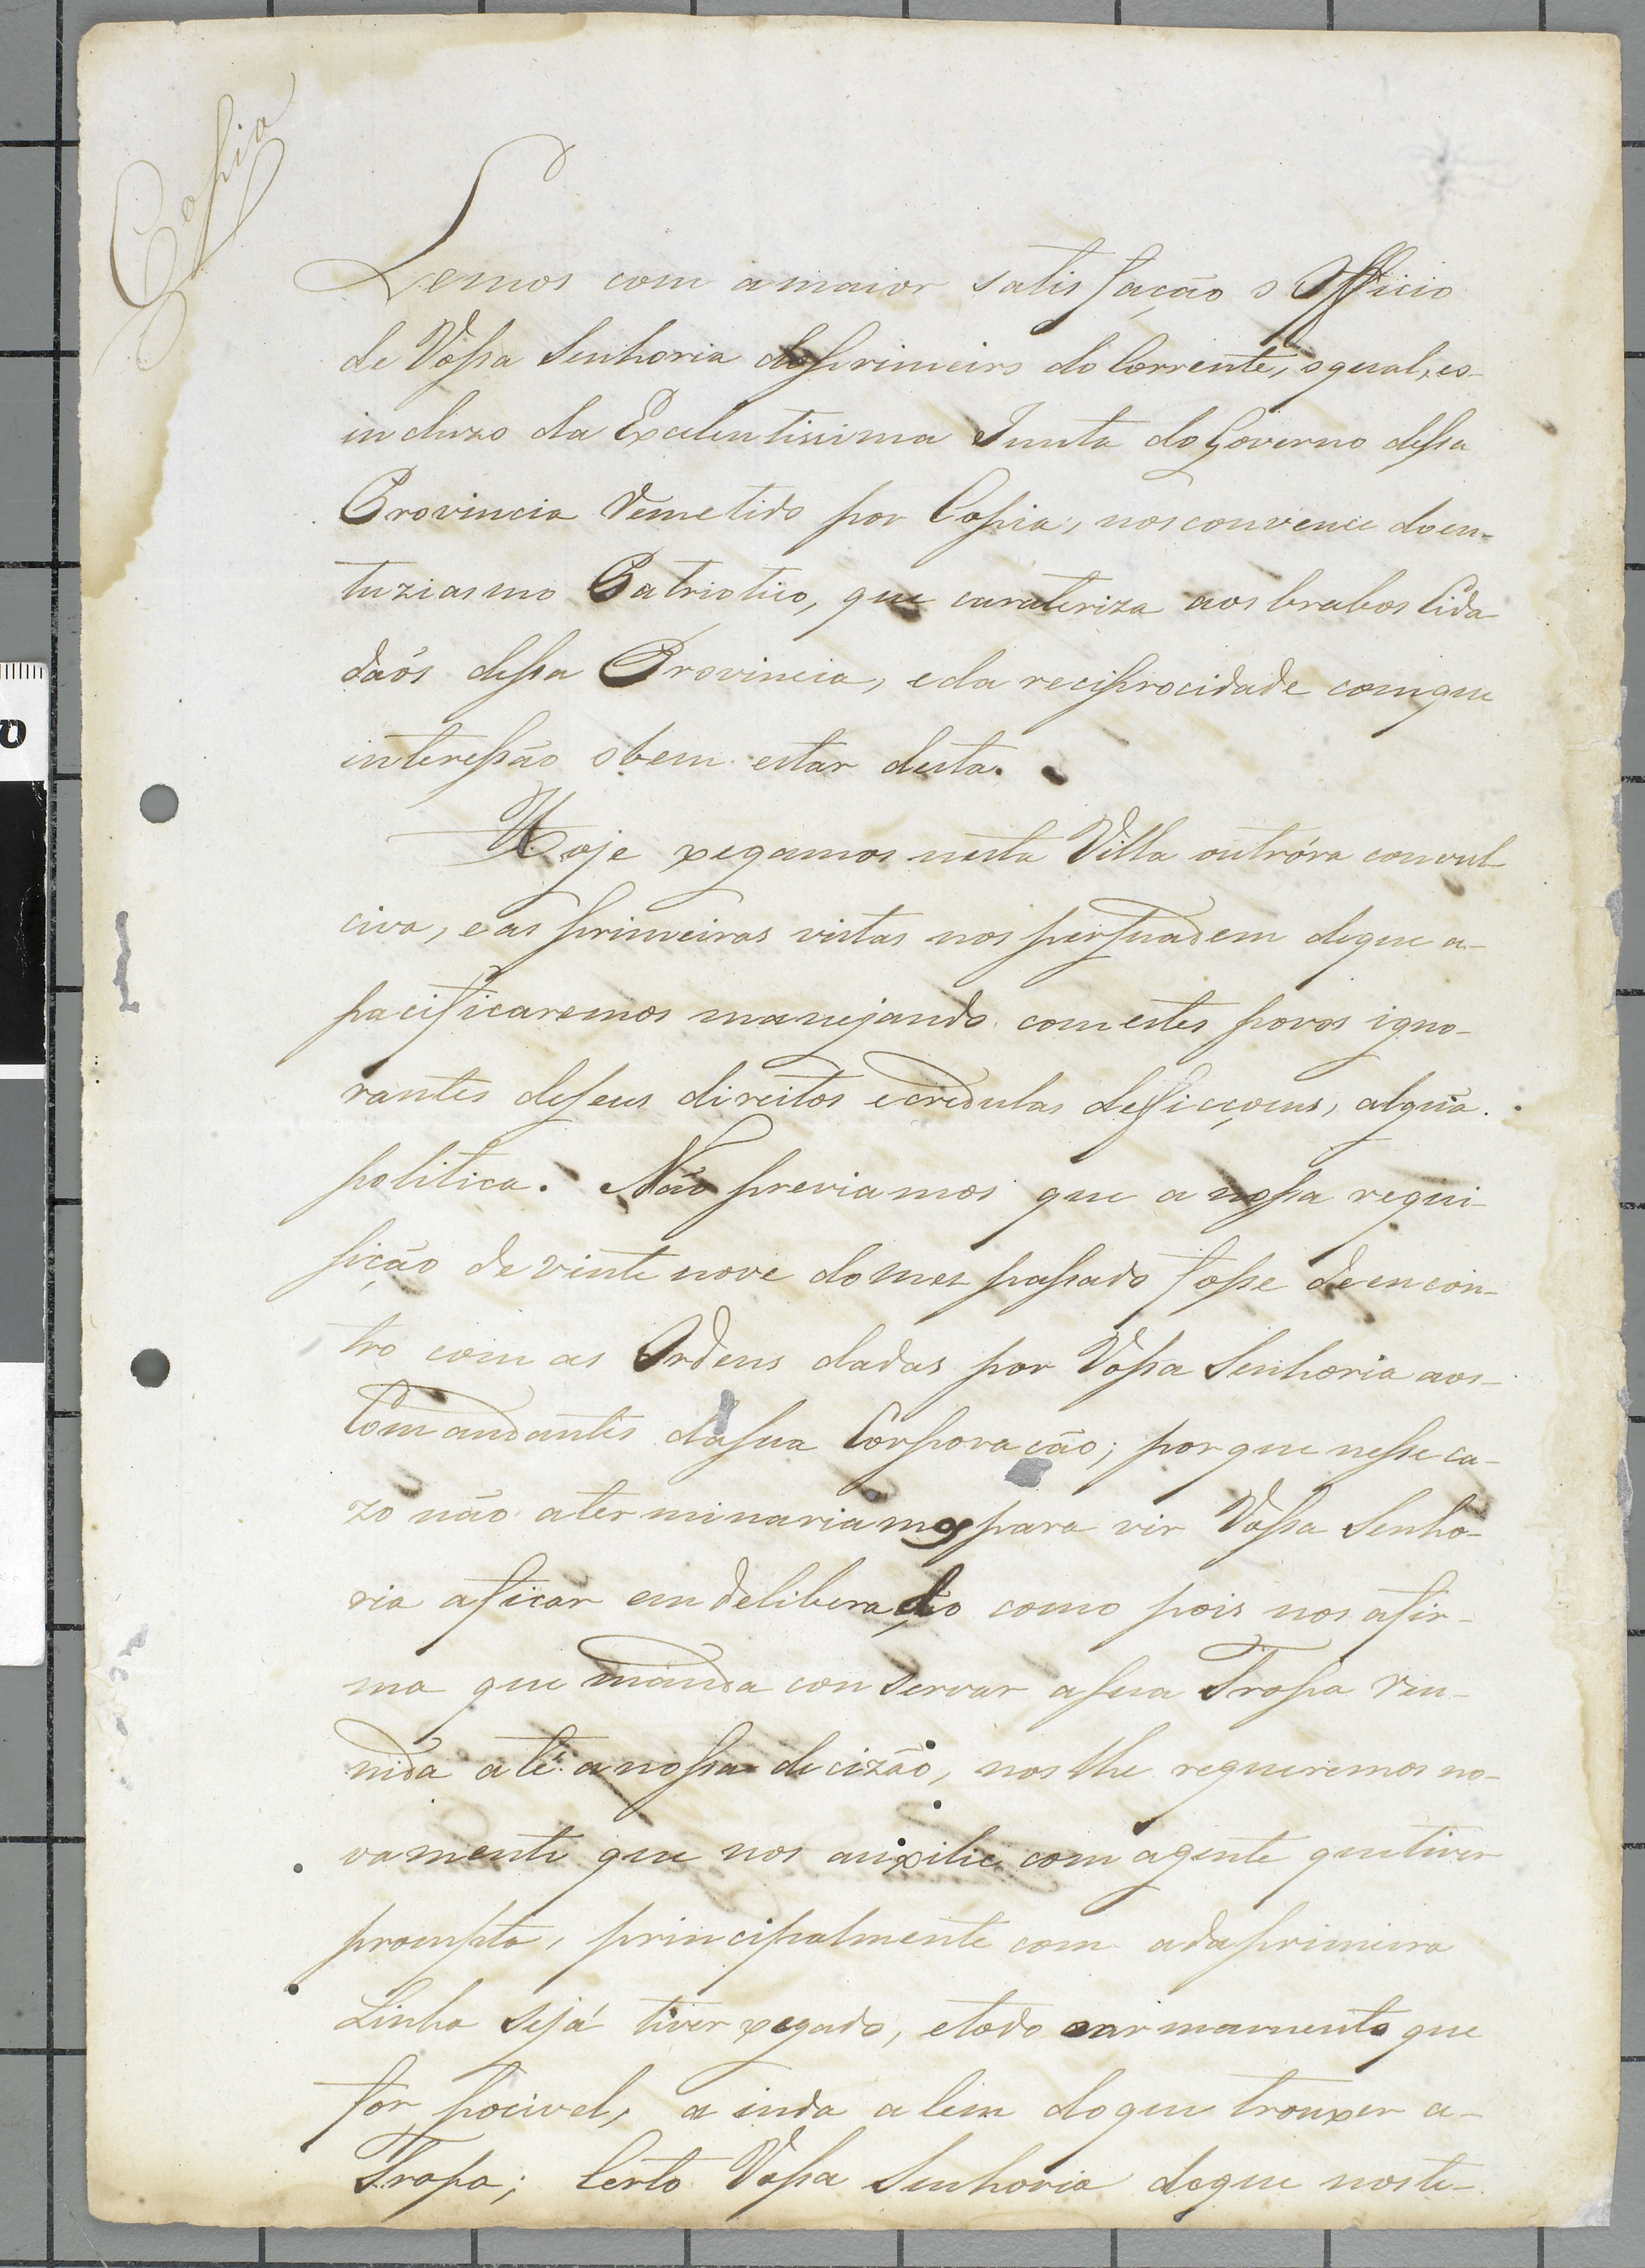 Copia
Lemos com amaior satisfação o Officio
de Vossa Senhoria doprimeiro do Corrente, oqual, eo-
incluzo da Excelentissima Junta do Governo dessa
Provincia Remetido por Copia, nos convence doen-
tuziasmo Patriotico, que carateriza aos brabos Cida
daõs dessa Provincia, eda reciprocidade comque
interessão obem estar desta.
Hoje xegamos nesta Villa outróra convul-
civa, eas primeiras vistas nos persuadem deque a-
pacificaremos manejando comestes povos igno-
rantes deseus direitos ecredulas deficçoens, algũa
politica. Não previamos que a nossa requi-
sição de vinte nove domes passado fosse deencon-
tro com as Ordens dadas por Vossa Senhoria aos
Comandantes dasua Corporação; porque nesse ca-
zo não aterminariamos para vir Vossa Senho-
ria aficar em como pois nos afir-
ma que manda conservar asua Tropa Reu-
nida até anossa decizão, nos lhe requeremos no-
vamente que nos auxilie com agente quetiver
prompta, principalmente com adaprimeira
Linha sejá tiver xegado, etodo oarmamento que
for pocivel, ainda alem doque trouxer a-
Tropa; Certo Vossa Senhoria deque noste-